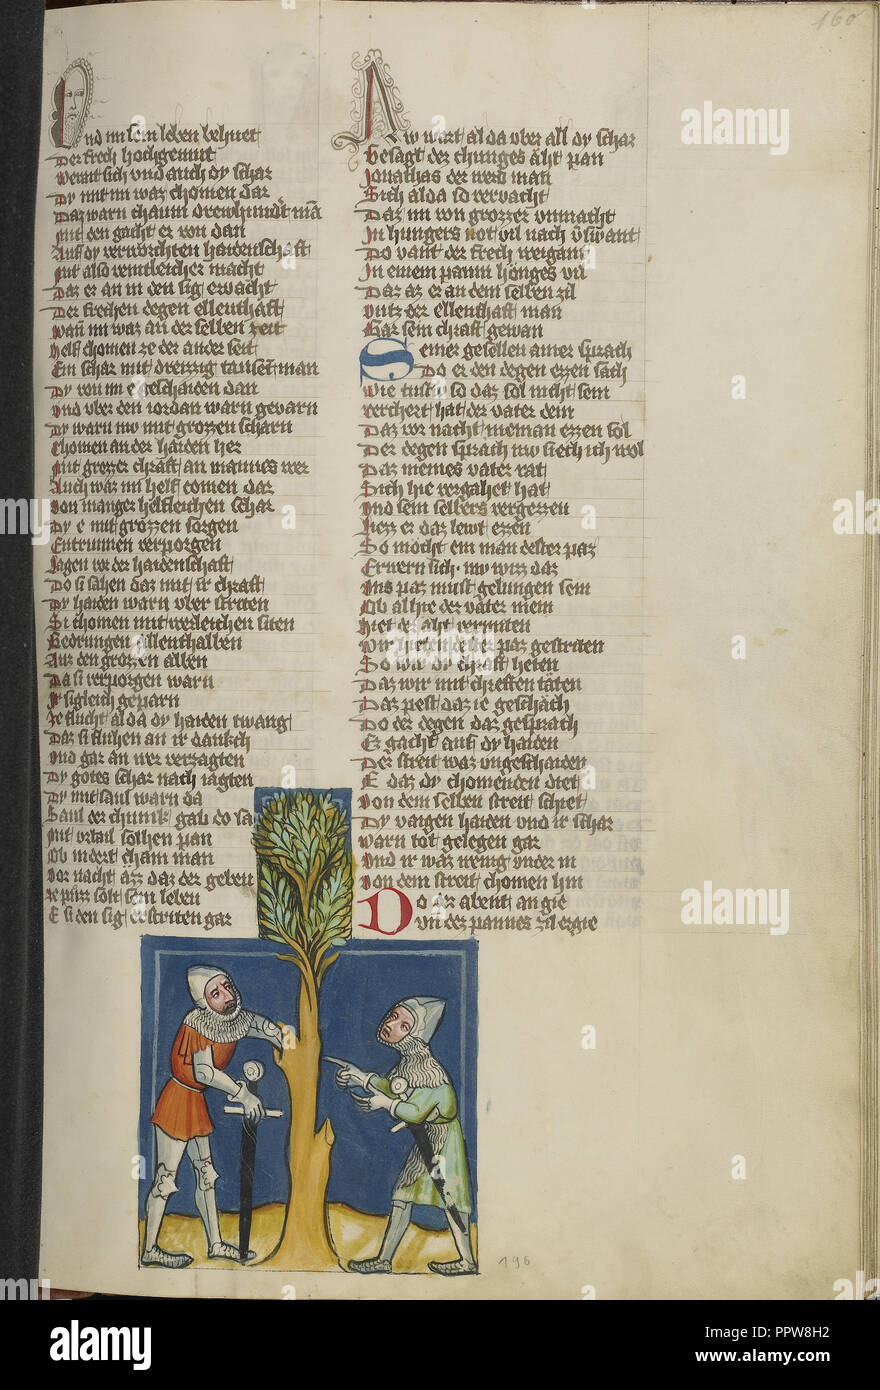 160
Und im sein leben behuet
Der frech hochgemut
Wennt sich und auch dy schar
Dy mit im waz chomen dar
Daz warn chaum drewhundt mā
Mit den gacht er von dan
Auf dy verworchten haidenschaft
Mit also veintleicher macht
Daz er an in den sig ervacht
Der frechen degen ellenthaft
Wañ im waz an der selben zeit
Helf chomen ze der ander seit
Ein schar mit dreizzig tausent man
Dy von im e geschaiden dan
Und uber den iordan warn gevarn
Dy warn nw mit grozzen scharn
Chomen an der haiden her
Mit grozzer chraft an mannes wer
Auch waz im helf comen dar
Von manger helfleichen schar
Dy e mit grozzen sorgen
Entrunnen verporgen
Lagen vor der haidenschaft
Do si sahen daz mit ir chraft
Dy haiden warn uber striten
Si chomen mit wedleichen siten
Gedrungen allenthalben
Auz den grozzen alben
Da si verporgen warn
Ir sigleich geparn
Ze flucht al da dy haiden twang
Daz si fluhen an ir dankch
Und gar an wer verzagten
Dy gotes schar nach iagten
Dy mit saul warn da
Saul der chunik gab do sa
Mit urtail sölhen pan
Ob indert chain man
Vor nacht äzz daz der geben
Ze puzz solt sein leben
E si den sig erstriten gar
Nw wart al da uber all dy schar
Gesagt der chunges äht pan
Jonathas der werd man
Sich alda so vervacht
Daz im von grozzer unmacht
In hungers not vil nach úswant
Do vant der frech weigant
In einem paum hönges vil
Daz az er an dem selben zil
Untz der ellenthaft man
Gar sein chraft gewan
Seiner gesellen ainer sprach
Do er den degen ezzen sach
Wie tust u so daz sol nicht sein
Verchert hat der vater dein
Daz vor nacht nieman ezzen sol
Der degen sprach nw siech ich wol
Daz meines vater rat
Sich hie vergahet hat
Und sein selbers vergezzen
Liezz er daz lewt ezzen
So möcht ein man dester paz
Erwern sich nw wizz daz
Uns paz must gelungen sein
Ob al hie der vater mein
Hiet de äht vermiten
Wir hieten deste paz gestriten
So wir dy chraft heten
Daz wir mit chreften täten
Daz pest daz ie geschäch
Do der degen daz gesprach
Er gacht auf dy haiden
Der streit waz ungeschaiden
E daz dy chomenden diet
Von dem selben streit schiet
Dy vaigen haiden und ir schar
Warn tot gelegen gar
Und ir waz wenig under in
Von dem streit chomen hin
Do der abent an gie
Un der pannes zil ergie
196
alamy
Image ID: PPW8H2
www.alamy.com